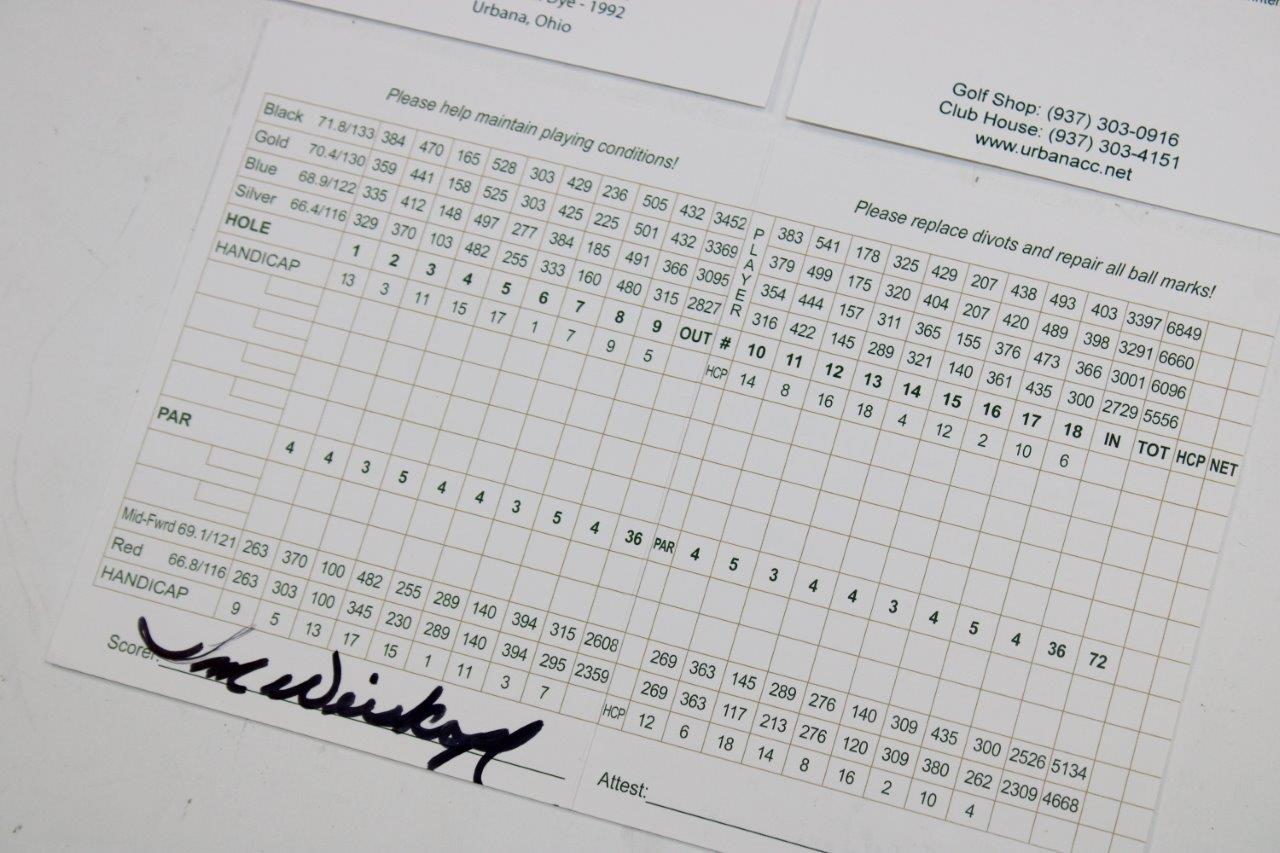 Dye - 1992
Urbana, Ohio
Golf Shop: (937) 303-0916
Club House: (937) 303-4151
www.urbanacc.net
Please help maintain playing conditions!
Please replace divots and repair all ball marks!
Black 71.8/133 384 470 165 528 303 429 236 505 432 3452 PLAYER 383 541 178 325 429 207 438 493 403 3397 6849
Gold 70.4/130 359 441 158 525 303 425 225 501 432 3369 379 499 175 320 404 207 420 489 398 3291 6660
Blue 68.9/122 335 412 148 497 277 384 185 491 366 3095 354 444 157 311 365 155 376 473 366 3001 6096
Silver 66.4/116 329 370 103 482 255 333 160 480 315 2827 316 422 145 289 321 140 361 435 300 2729 5556
HOLE 1 2 3 4 5 6 7 8 9 OUT # 10 11 12 13 14 15 16 17 18 IN TOT HCP NET
HANDICAP 13 3 11 15 17 1 7 9 5 HCP 14 8 16 18 4 12 2 10 6
PAR 4 4 3 5 4 4 3 5 4 36 PAR 4 5 3 4 4 3 4 5 4 36 72
Mid-Fwrd 69.1/121 263 370 100 482 255 289 140 394 315 2608 269 363 145 289 276 140 309 435 300 2526 5134
Red 66.8/116 263 303 100 345 230 289 140 394 295 2359 269 363 117 213 276 120 309 380 262 2309 4668
HANDICAP 9 5 13 17 15 1 11 3 7 HCP 12 6 18 14 8 16 2 10 4
Scorer: Tom Weiskopf
Attest: